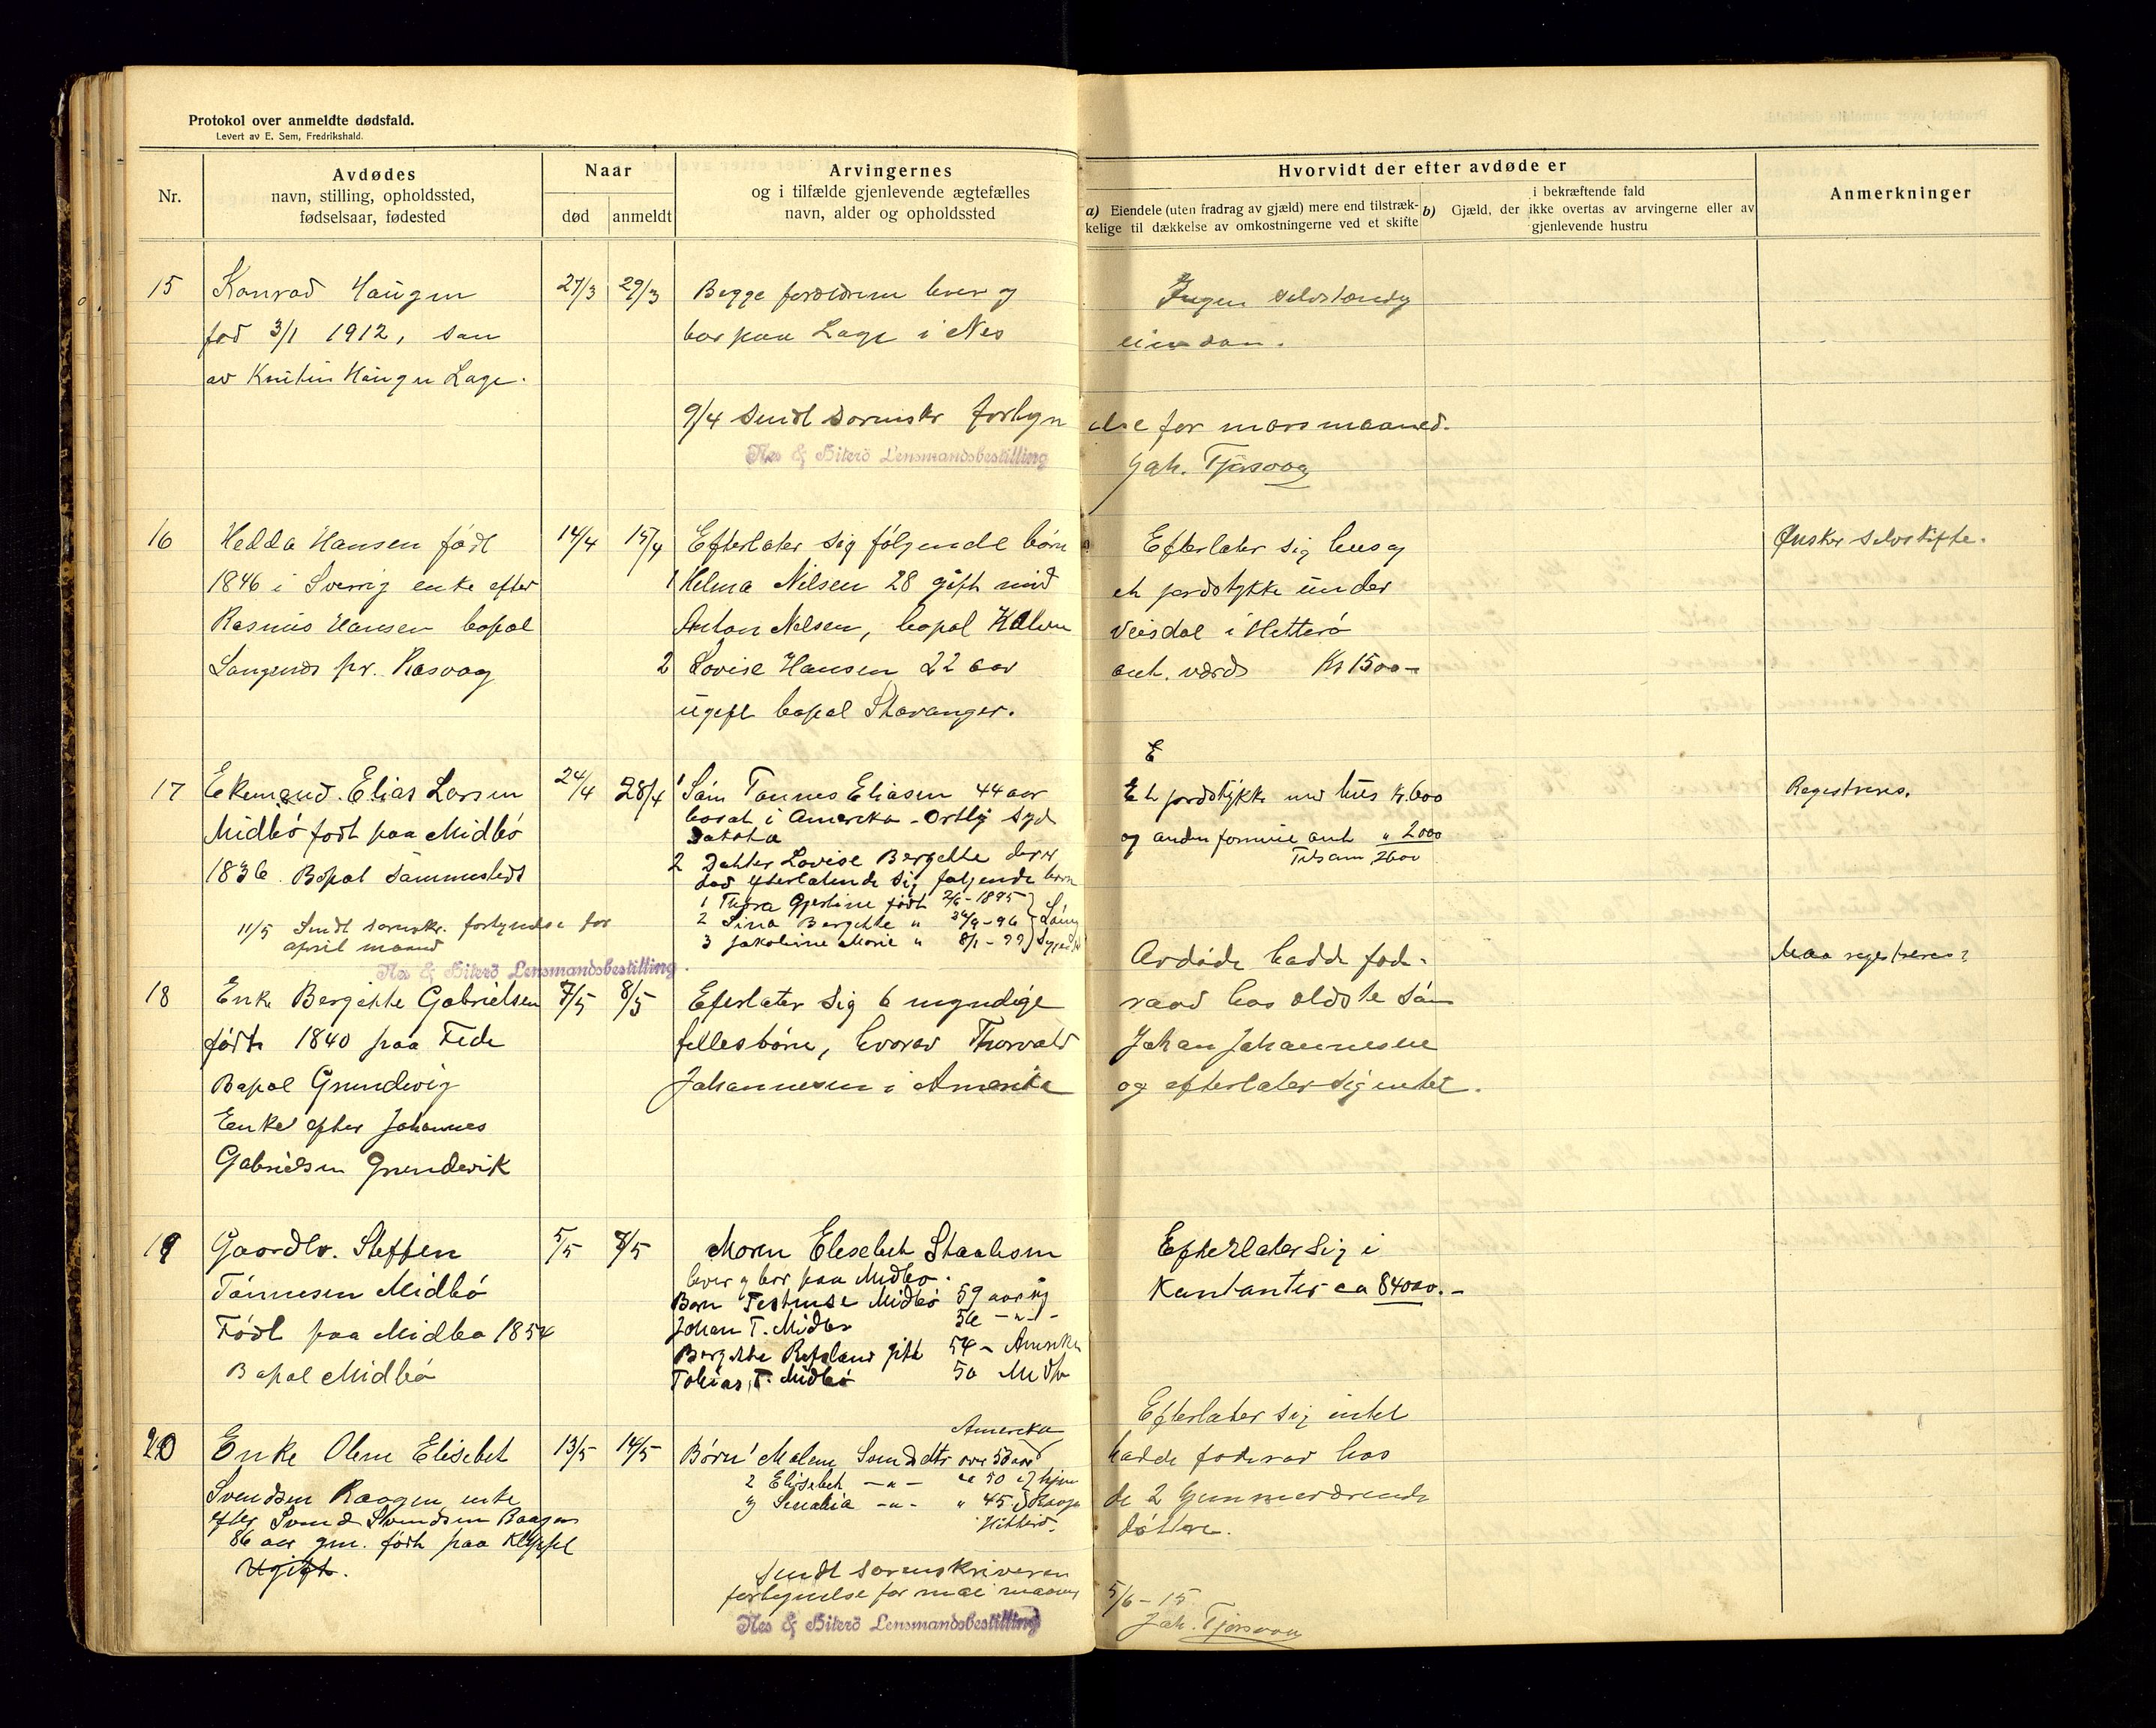 Protokol over anmeldte dødsfald.
Levert av E. Sem, Fredrikshald.
Nr.
Avdødes
navn, stilling, opholdssted,
fødselsaar, fødested
Naar
død
anmeldt
Arvingernes
og i tilfælde gjenlevende ægtefælles
navn, alder og opholdssted
Hvorvidt der efter avdøde er
a) Eiendele (uten fradrag av gjæld) mere end tilstræk-
kelige til dækkelse av omkostningerne ved et skifte
i bekræftende fald
b) Gjæld, der ikke overtas av arvingerne eller av
gjenlevende hustru
Anmerkninger
15
Konrad Haugen
fød 3/1 1912, søn
av Haugen Lage.
27/3
29/3
Begge forældrene lever og
bor paa Lage i Nes
Ingen selvstændig
eiendom.
9/4 sendt sorenskr fortegn
else for mars maaned.
Nes & Hiterö Lensmandsbestilling
Joh. Tjørsvaag
16
Hedda Hansen født
1846 i Sverrig enke efter
Rasmus Hansen bopæl
Langenes pr. Rasvag
14/4
15/4
Efterlater sig følgende børn
1 Helma Nilsen 28 gift med
Anton Nelsen, bopæl
2 Lovise Hansen 22 aar
ugift bopæl Stavanger.
Efterlater sig hus og
et jordstykke under
Veisdal i Hitterø
ant. værd Kr 1500-
Ønsker selvskifte.
17
Ekemand. Elias Larsen
Midbø født paa Midbø
1836. Bopæl sammesteds
24/4
28/4
1 Søn Tønnes Eliasen 44 aar
bosat i Amerika - Syd
Dakota
2 Datter Lovise Bergitte der er
død efterlatende sig følgende børn
1 Thora Gjertine født 2/6-1895
2 Sina Bergitte " -96
3 Jakobine Marie " 8/1-99
E
Et jordstykke med hus kr. 600
og anden formue ant " 2000
Tilsam 2600
Registreres.
11/5 Sendt sorenskr. fortegnelse for
april maaned
Nes & Hiterö Lensmandsbestilling.
18
Enke Bergitte Gabrielsen
født 1840 paa Fede
Bopæl Grundevig
Enke efter Johannes
Gabrielsen Grundevik
7/5
8/5
Efterlater sig 6 myndige
fellesbørn, hvorav Thorvald
Johannesen i Amerika
Avdøde hadde fød-
raad hos ældste søn
Johan Johannesen
og efterlater sig intet.
Maa registreres?
19
Gaardbr. Steffen
Tønnesen Midbø
Født paa Midbø 1854
Bopæl Midbø
5/5
8/5
Moren Elesebet Staalesen
lever og bor paa Midbø.
Børn Midbø 59 aar
Johan T. Midbø 56 -"-
Bergitte Refsland gift 54 - Amerika
Tobias T. Midbø 50 Midbø
Efterlater sig i
Kontanter ca 84000.-
20
Enke Olene Elisebet
Svendsen Raagen enke
efter Svend Svendsen Raagen
86 aar gm. født paa
Ugift.
13/5
14/5
Amerika
Børn 1 Malene Svendsdtr over 50 aar
2 Elisebet -"- ca 50
3 Senalia -"- " 45
Hitterø.
Efterlater sig intet
hadde føderaad hos
de 2 hjemmeværende
døttere.
Sendt sorenskriveren
fortegnelse for mai maaned
5/6-15
Nes & Hiterö Lensmandsbestilling
Joh. Tjørsvaag